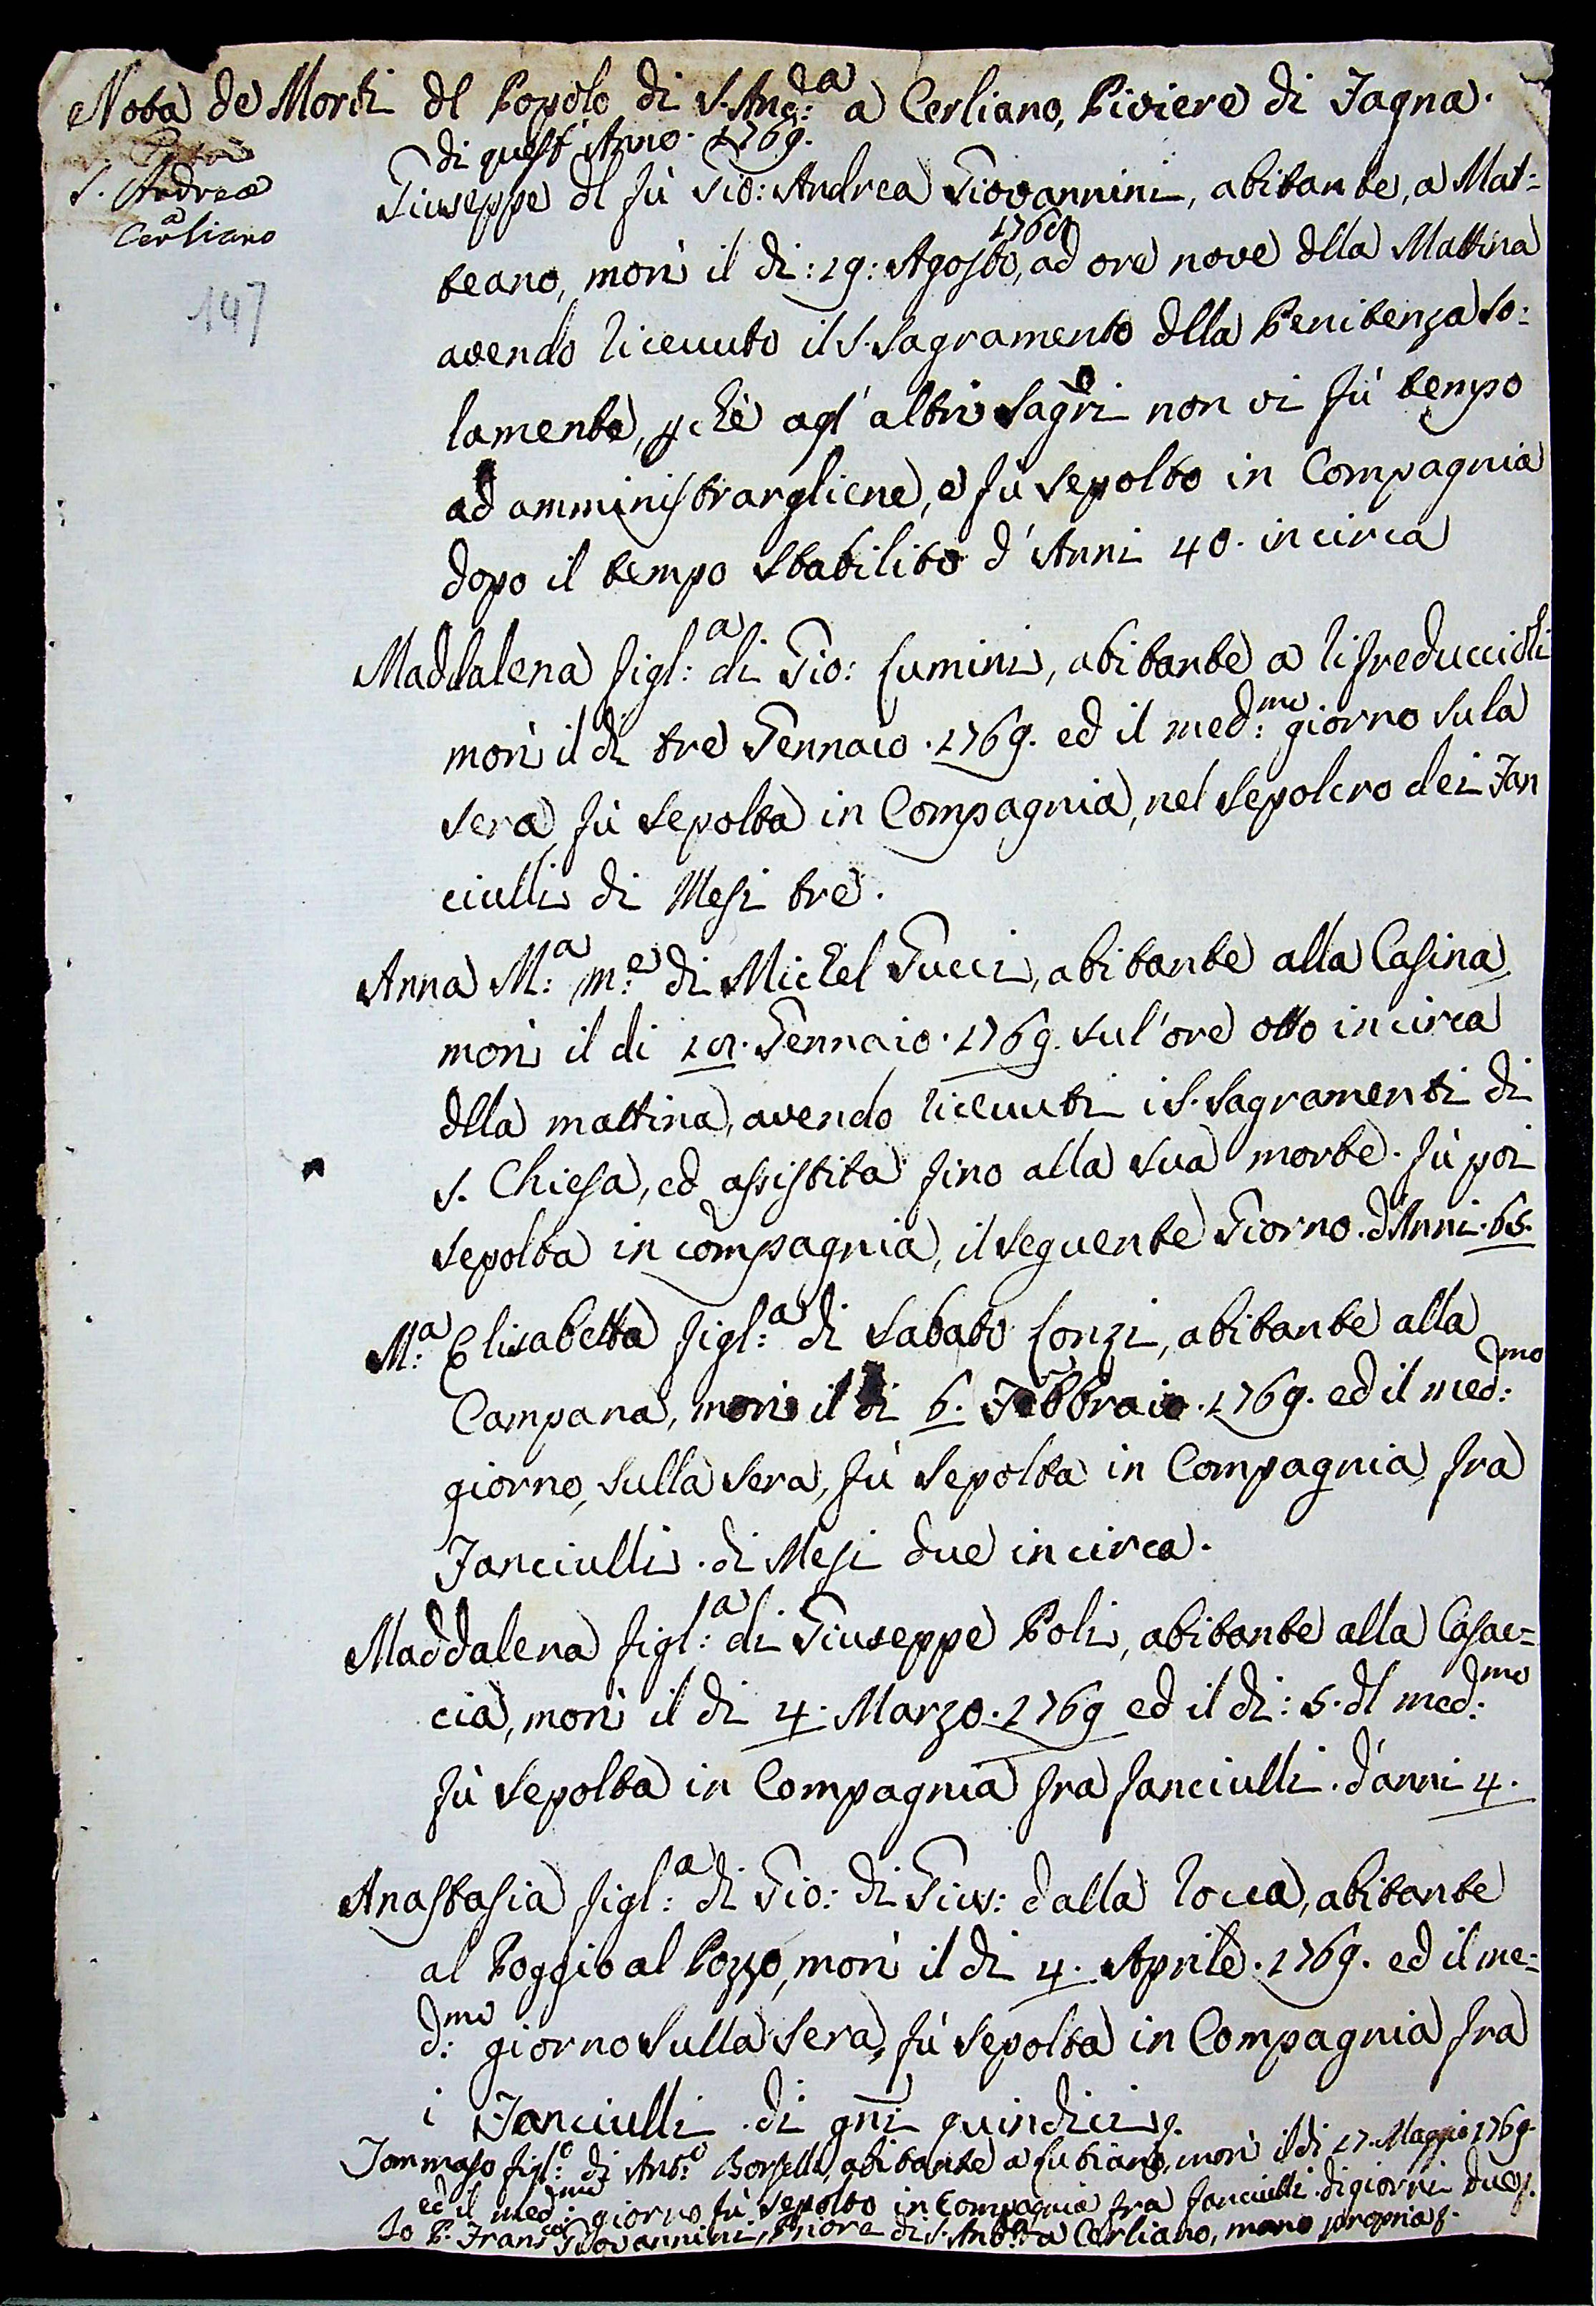 Nota de Morti dl Popolo di S. And:a a Cerliano, Piviere di Fagna.
di quest' Anno. 1769.
S. Andrea
a
Cerliano
147
Giuseppe dl fù Gio: Andrea Giovannini, abitante, a Mat=
teano, morì il dì: 19: Agosto, 1768 ad ore nove dlla Mattina
avendo ricevuto il S. Sagramento dlla Penitenza so:
lamente, pchè agl' altri Sagri non vi fù tempo
ad amministrargliene, e fù sepolto in Compagnia
dopo il tempo stabilito d' Anni 40. in circa
Maddalena figl:a di Gio: Lumini, abitante a Rifreduccioli
morì il dì tre Gennaio. 1769. ed il med:mo giorno su la
sera fù sepolta in Compagnia, nel sepolcro dei Fan
ciulli di Mesi tre.
Anna M:a m:e di Michel Gucci, abitante alla Casina,
morì il di Gennaio. 1769. sul' ore otto in circa
dlla mattina, avendo ricevuti i S. Sagramenti di
S. Chiesa, ed assistita fino alla sua morte. fù poi
sepolta in compagnia, il seguente Giorno. d'Anni. 65.
M:a Elisabetta figl:a di Sabato Lonzi, abitante alla
Campana, morì il di 6. Febbraio. 1769. ed il med:mo
giorno, sulla sera, fù sepolta in Compagnia fra
Fanciulli. di Mesi due in circa.
Maddalena figl:a di Giuseppe Poli, abitante alla Casac=
cia, morì il di 4. Marzo. 1769 ed il di: 5. dl med:mo
fù sepolta in Compagnia fra fanciulli. d'anni 4.
Anastasia figl:a di Gio: di Gius: dalla Rocca, abitante
al Poggio al Pozzo, morì il di 4. Aprile. 1769. ed il me=
d:mo giorno sulla sera, fù sepolta in Compagnia fra
i Fanciulli. di gni quindici
Tommaso figl:o di Ant:o Borselli, abitante a Lubiano, morì il di 17. Maggio 1769.
ed il med:mo giorno fù sepolto in Compagnia fra fanciulli. di giorni due
Io P. Franc:co Giovannini, Priore di S. And:a a Cerliano, mano propria